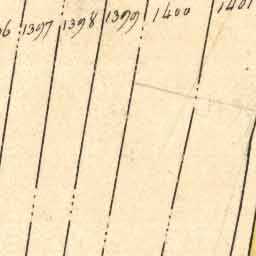 1397 1398 1399 1400 1401